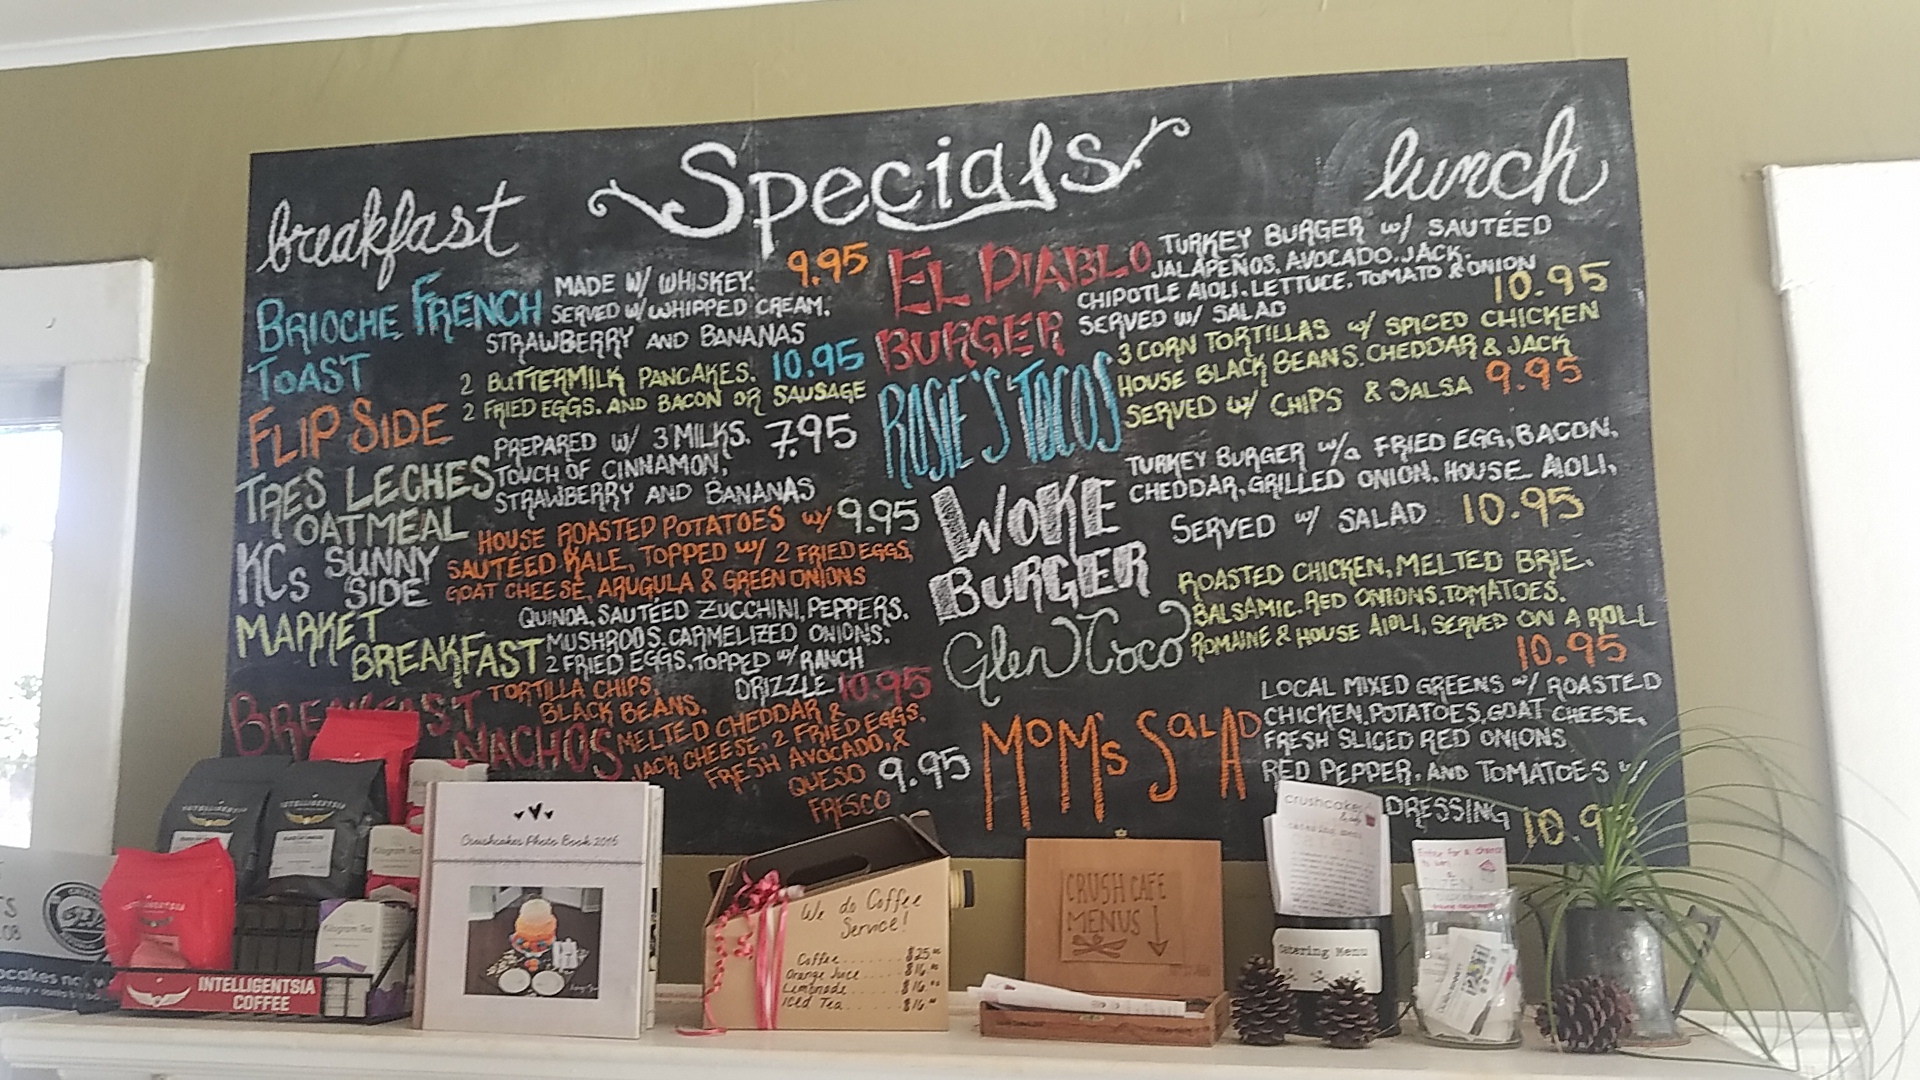 Specials
breakfast
BRIOCHE FRENCH TOAST
MADE W/ WHISKEY. 9.95
SERVED W/ WHIPPED CREAM.
STRAWBERRY AND BANANAS
FLIP SIDE
2 BUTTERMILK PANCAKES. 10.95
2 FRIED EGGS. AND BACON OR SAUSAGE
TRES LECHES OATMEAL
PREPARED W/ 3 MILKS. 7.95
TOUCH OF CINNAMON,
STRAWBERRY AND BANANAS
KCs SUNNY SIDE
HOUSE ROASTED POTATOES W/ 9.95
SAUTÉED KALE, TOPPED W/ 2 FRIED EGGS,
GOAT CHEESE, ARUGULA & GREEN ONIONS
MARKET BREAKFAST
QUINOA, SAUTÉED ZUCCHINI, PEPPERS.
MUSHROOS. CARMELIZED ONIONS.
2 FRIED EGGS, TOPPED W/ RANCH
DRIZZLE 10.95
BREAKFAST NACHOS
TORTILLA CHIPS,
BLACK BEANS.
MELTED CHEDDAR &
JACK CHEESE, 2 FRIED EGGS.
FRESH AVOCADO, &
QUESO 9.95
FRESCO
lunch
EL DIABLO BURGER
TURKEY BURGER W/ SAUTÉED
JALAPEÑOS. AVOCADO. JACK.
CHIPOTLE AIOLI. LETTUCE. TOMATO & ONION
SERVED W/ SALAD 10.95
ROSIE'S TACOS
3 CORN TORTILLAS W/ SPICED CHICKEN
HOUSE BLACK BEANS. CHEDDAR & JACK
SERVED W/ CHIPS & SALSA 9.95
WOKE BURGER
TURKEY BURGER W/a FRIED EGG, BACON,
CHEDDAR, GRILLED ONION, HOUSE AIOLI,
SERVED W/ SALAD 10.95
Glen Coco
ROASTED CHICKEN, MELTED BRIE.
BALSAMIC. RED ONIONS. TOMATOES.
ROMAINE & HOUSE AIOLI, SERVED ON A ROLL
10.95
MOMs SALAD
LOCAL MIXED GREENS W/ ROASTED
CHICKEN, POTATOES, GOAT CHEESE,
FRESH SLICED RED ONIONS
RED PEPPER, AND TOMATOES W/
DRESSING 10.9
INTELLIGENTSIA
COFFEE
Kilogram Tea
Kilogram Tea
Crushcakes Photo Book 2015
We do Coffee
Service!
Coffee $25.00
Orange Juice $16.00
Lemonade $16.00
Iced Tea $16.00
CRUSH CAFE
MENUS
crushcake
Catering Menu
Enter for a chance
to win